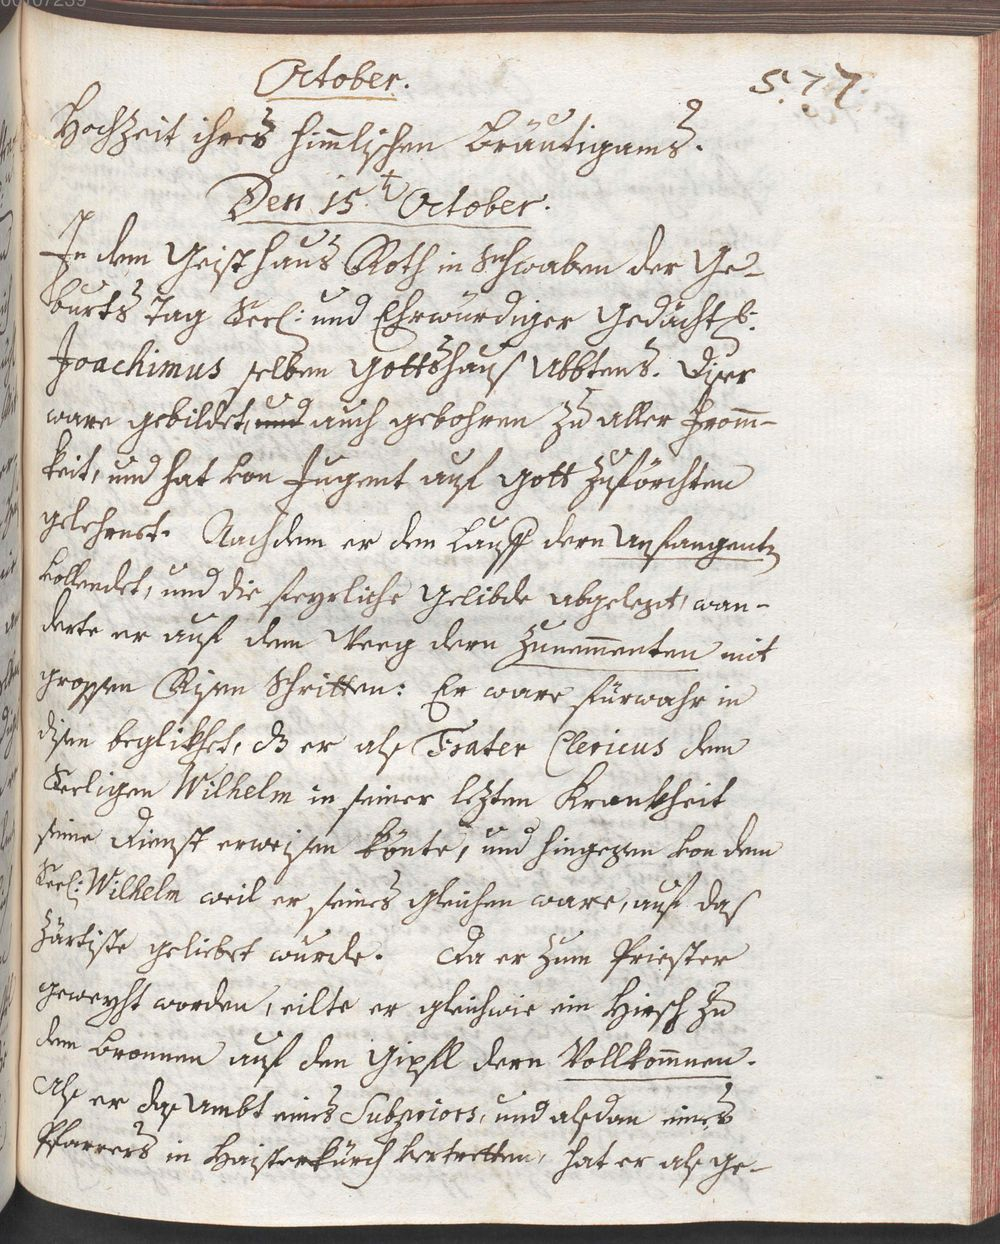 00107239
October.
577.
Hochzeit ihres himlischen Bräutigams.
Den 15.t October.
In dem Geisthaus Roth in Schwaben der Ge-
burts Tag Seel: und Ehrwürdiger Gedächtß.
Joachimus selben Gottshauß Abbtens. Diser
ware gebildet, und auch gebohren zu aller From-
keit, und hat von Jugent auf Gott zuförchten
gelehrnet. Nachdem er den Lauff dern Anfangenten
vollendet, und die feyrliche Gelibde abgelegt, wan-
derte er auf dem Weeg dern Zunemmenten mit
grossen Risen Schritten: Er ware fürwahr in
disem beglikhet, dz er als Frater Clericus dem
Seeligen Wilhelm in seiner lezten Krankheit
seine Dienst erweisen könte, und hingegen von dem
Seel: Wilhelm weil er seines gleichen ware, auf das
zärtiste geliebet wurde. Da er zum Priester
geweyht worden, eilte er gleichwie ein Hirsch zu
dem Bronnen auf den Gipfl dern Vollkomnen.
Als er das Ambt eines Subpriors, und alsdan eines
Pfarrers in Haisterkürch vertretten, hat er als ge-